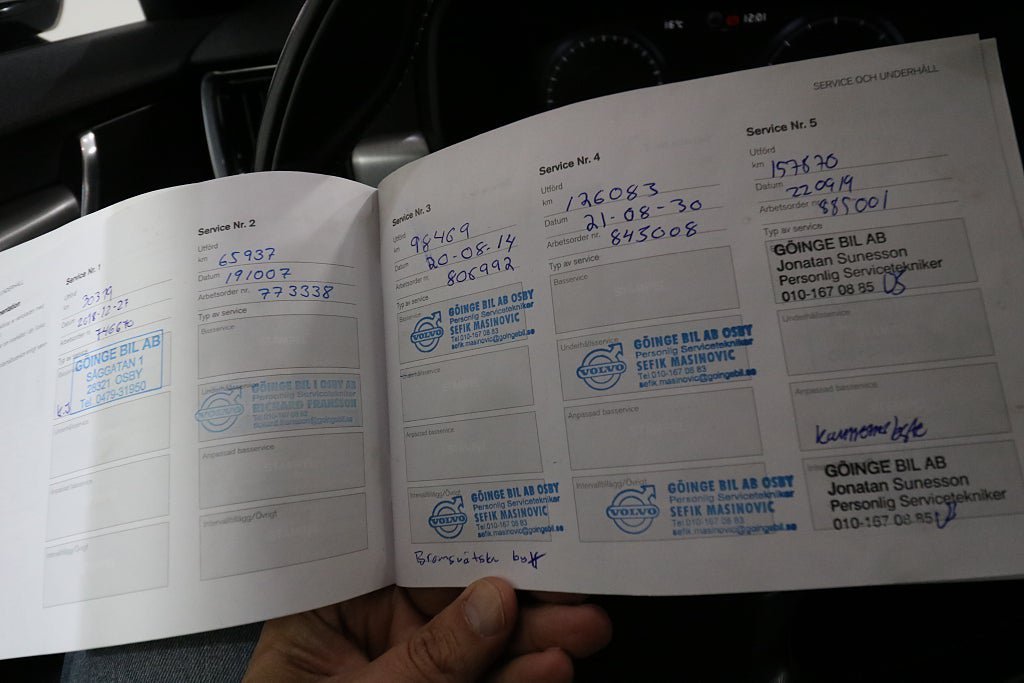 16°C
12:01
SERVICE OCH UNDERHÅLL
Service Nr. 1
Utförd
km 30319
Datum 2018-12-27
Arbetsorder nr. 746670
GÖINGE BIL AB
SÅGGATAN 1
28321 OSBY
Tel. 0479-31950
KJ
Underhållsservice
Anpassad basservice
Intervalltillägg/Övrigt
Service Nr. 2
Utförd
km 65937
Datum 191007
Arbetsorder nr. 773338
Typ av service
Basservice
Underhållsservice
GÖINGE BIL I OSBY AB
Personlig Servicetekniker
RICHARD FRANSSON
Tel.010-167 08 82
rickard.fransson@goingebil.se
VOLVO
Anpassad basservice
Intervalltillägg/Övrigt
Service Nr. 3
Utförd
km 98469
Datum 20-08-14
Arbetsorder nr. 806992
Typ av service
Basservice
VOLVO
GÖINGE BIL AB OSBY
Personlig Servicetekniker
SEFIK MASINOVIC
Tel.010-167 08 83
sefik.masinovic@goingebil.se
Underhållsservice
Anpassad basservice
Intervalltillägg/Övrigt
VOLVO
GÖINGE BIL AB OSBY
Personlig Servicetekniker
SEFIK MASINOVIC
Tel.010-167 08 83
sefik.masinovic@goingebil.se
Bromsvätske byte
Service Nr. 4
Utförd
km 126083
Datum 21-08-30
Arbetsorder nr. 843008
Typ av service
Basservice
Underhållsservice
VOLVO
GÖINGE BIL AB OSBY
Personlig Servicetekniker
SEFIK MASINOVIC
Tel.010-167 08 83
sefik.masinovic@goingebil.se
Anpassad basservice
Intervalltillägg/Övrigt
VOLVO
GÖINGE BIL AB OSBY
Personlig Servicetekniker
SEFIK MASINOVIC
Tel.010-167 08 83
sefik.masinovic@goingebil.se
Service Nr. 5
Utförd
km 157870
Datum 220919
Arbetsorder nr. 885001
Typ av service
GÖINGE BIL AB
Jonatan Sunesson
Personlig Servicetekniker
010-167 08 85
Underhållsservice
Anpassad basservice
Kamremsbyte
GÖINGE BIL AB
Jonatan Sunesson
Personlig Servicetekniker
010-167 08 85